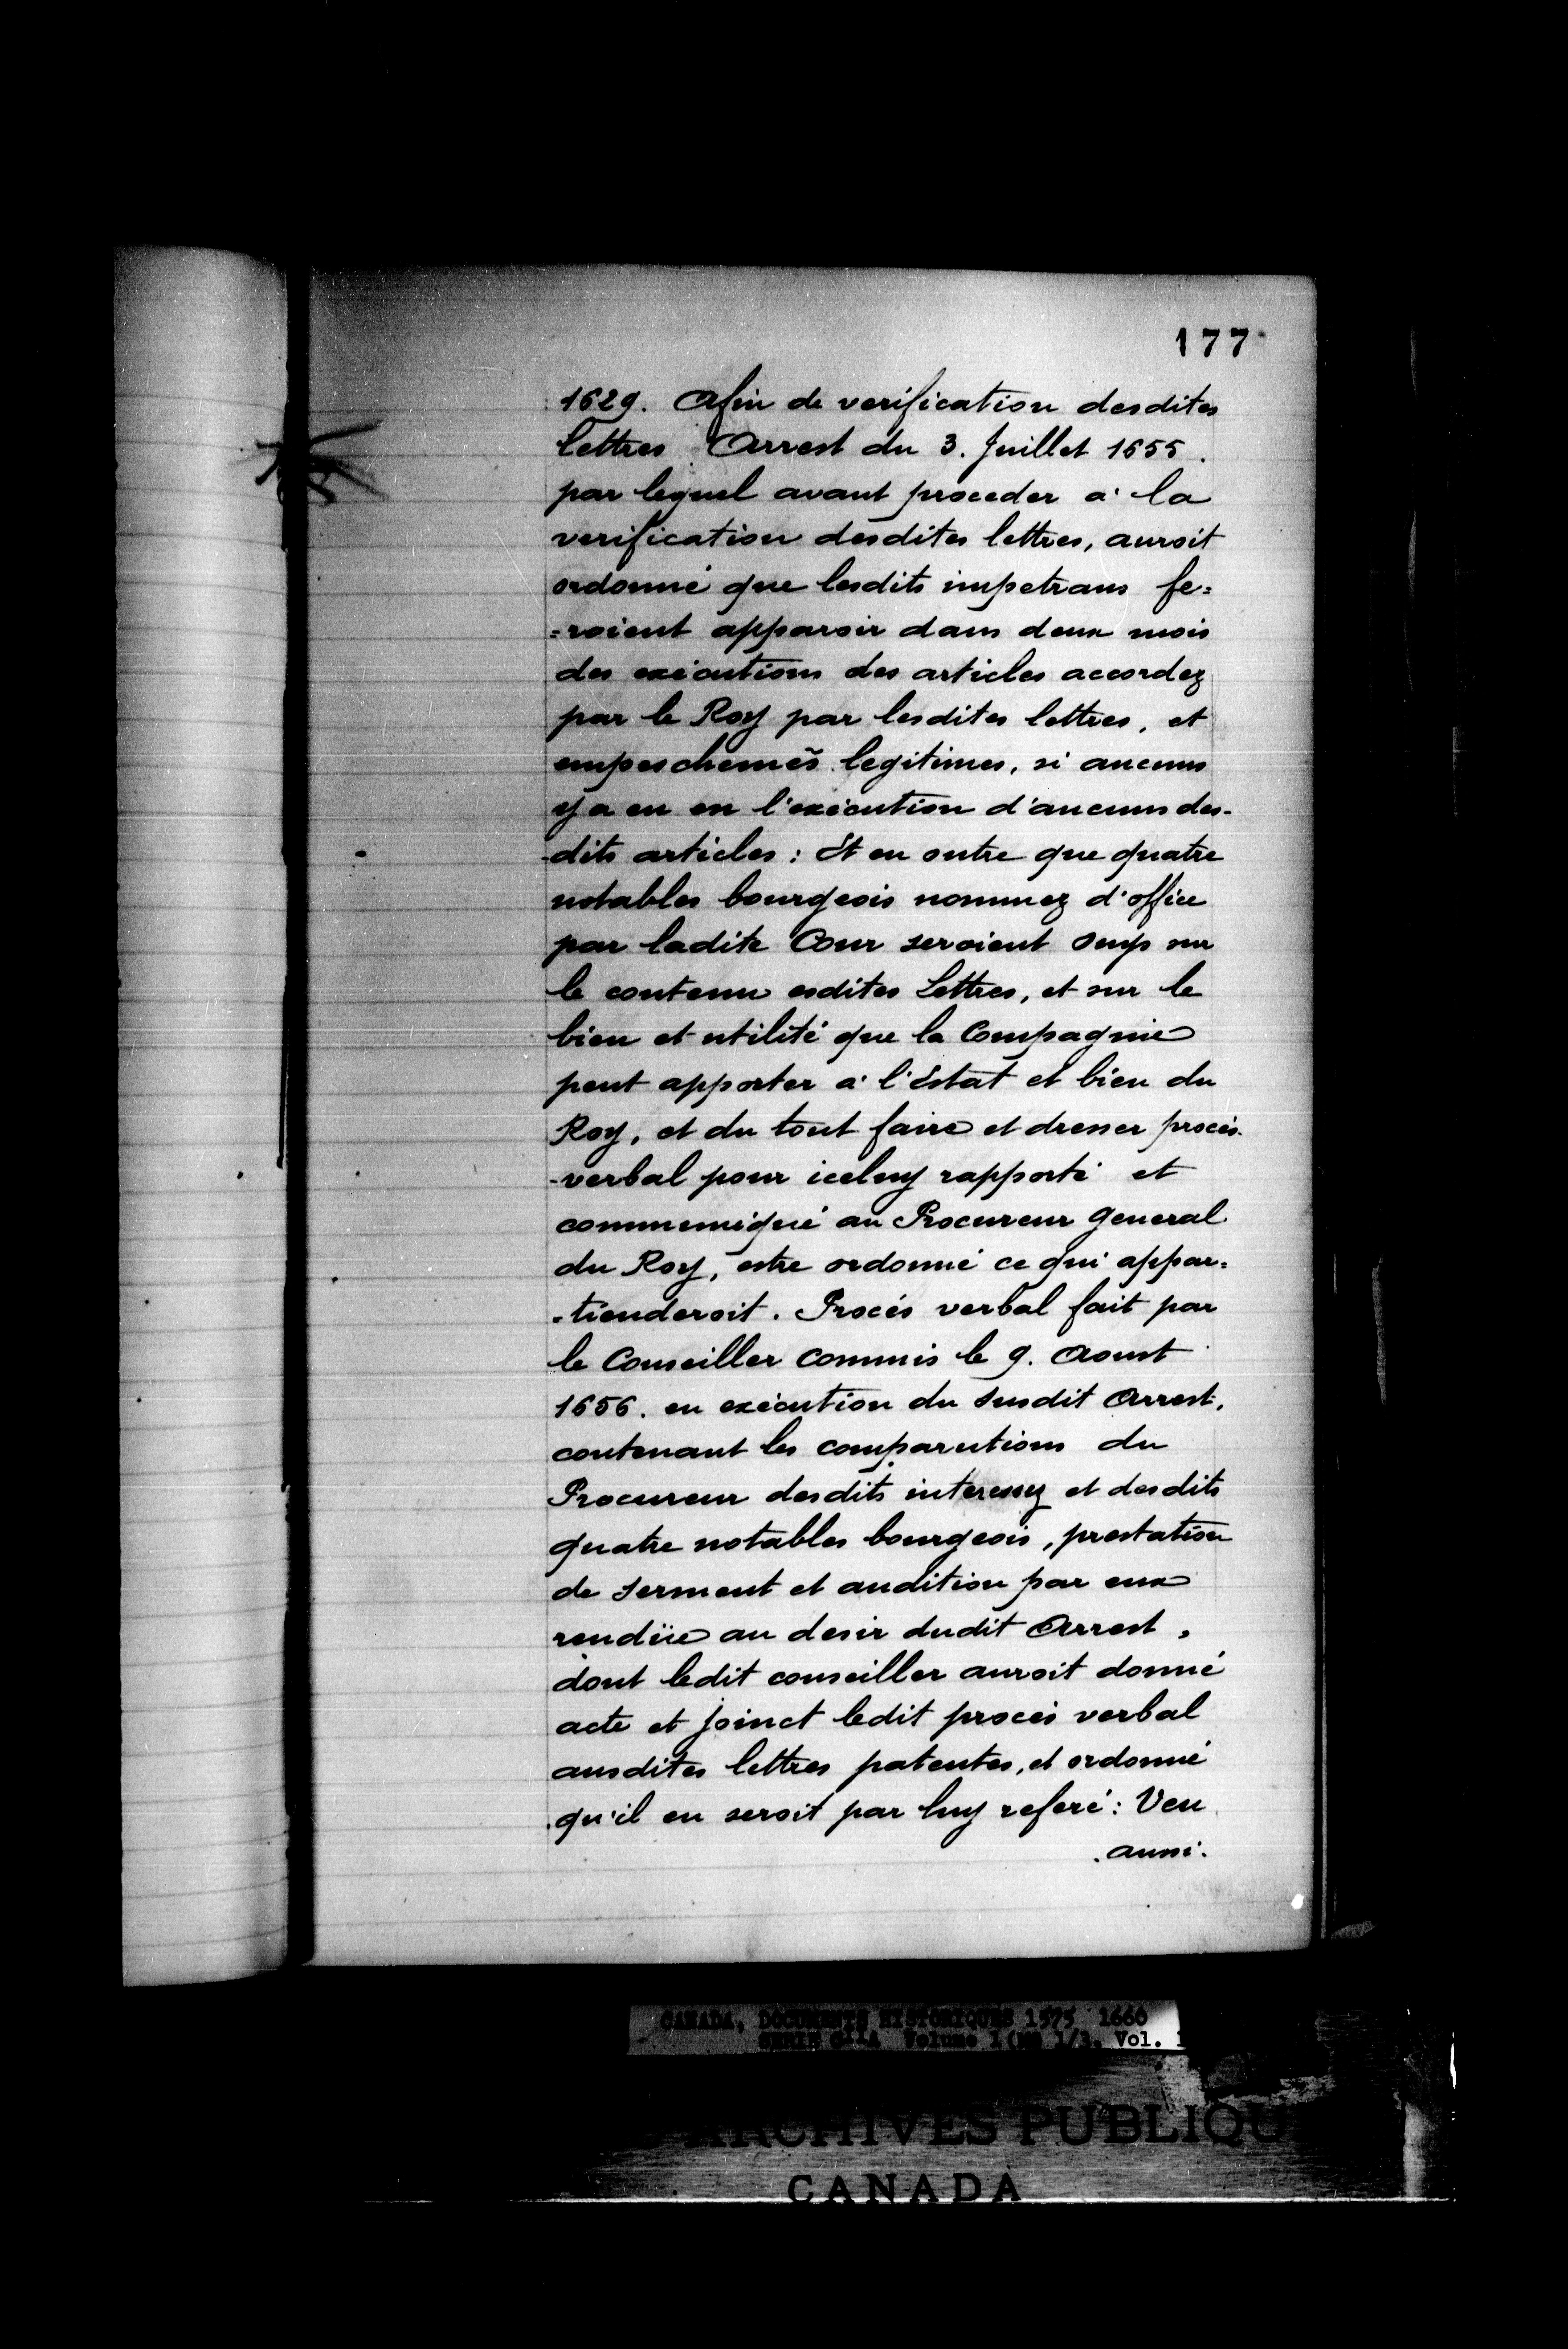 177
1629. Afin de verification desdites
lettres. Arrest du 3. Juillet 1655.
par lequel avant proceder a la
verification desdites lettres, auroit
ordonné que lesdits impetrans fe=
=roient apparoir dans deux mois
des exécutions des articles accordez
par le Roy par lesdites lettres, et
empeschemẽs legitimes, si aucuns
y a eu en l'exécution d'aucuns des-
-dits articles : Et en outre que quatre
notables bourgeois nommez d'office
par ladite Cour seroient ouys sur
le contenu esdites Lettres, et sur le
bien et utilité que la Compagnie
peut apporter a l'Estat et bien du
Roy, et du tout faire et dresser procés-
-verbal pour iceluy rapporté et
communiqué au Procureur general
du Roy, estre ordonné ce qui appar=
-tienderoit. Procés verbal fait par
le Conseiller commis le 9. Aoust
1656. en exécution du susdit Arrest,
contenant les comparutions du
Procureur desdits interessez et desdits
quatre notables bourgeois, prestation
de serment et audition par eux
rendüe au desir dudit Arrest,
dont ledit conseiller auroit donné
acte et joinct ledit procés verbal
ausdites lettres patentes, et ordonné
qu'il en seroit par luy referé : Veu
aussi.
CANADA, DOCUMENTS HISTORIQUES 1575 1660
SERIE C11A Volume 1 (MG 1/3, Vol. 1
ARCHIVES PUBLIQU
CANADA